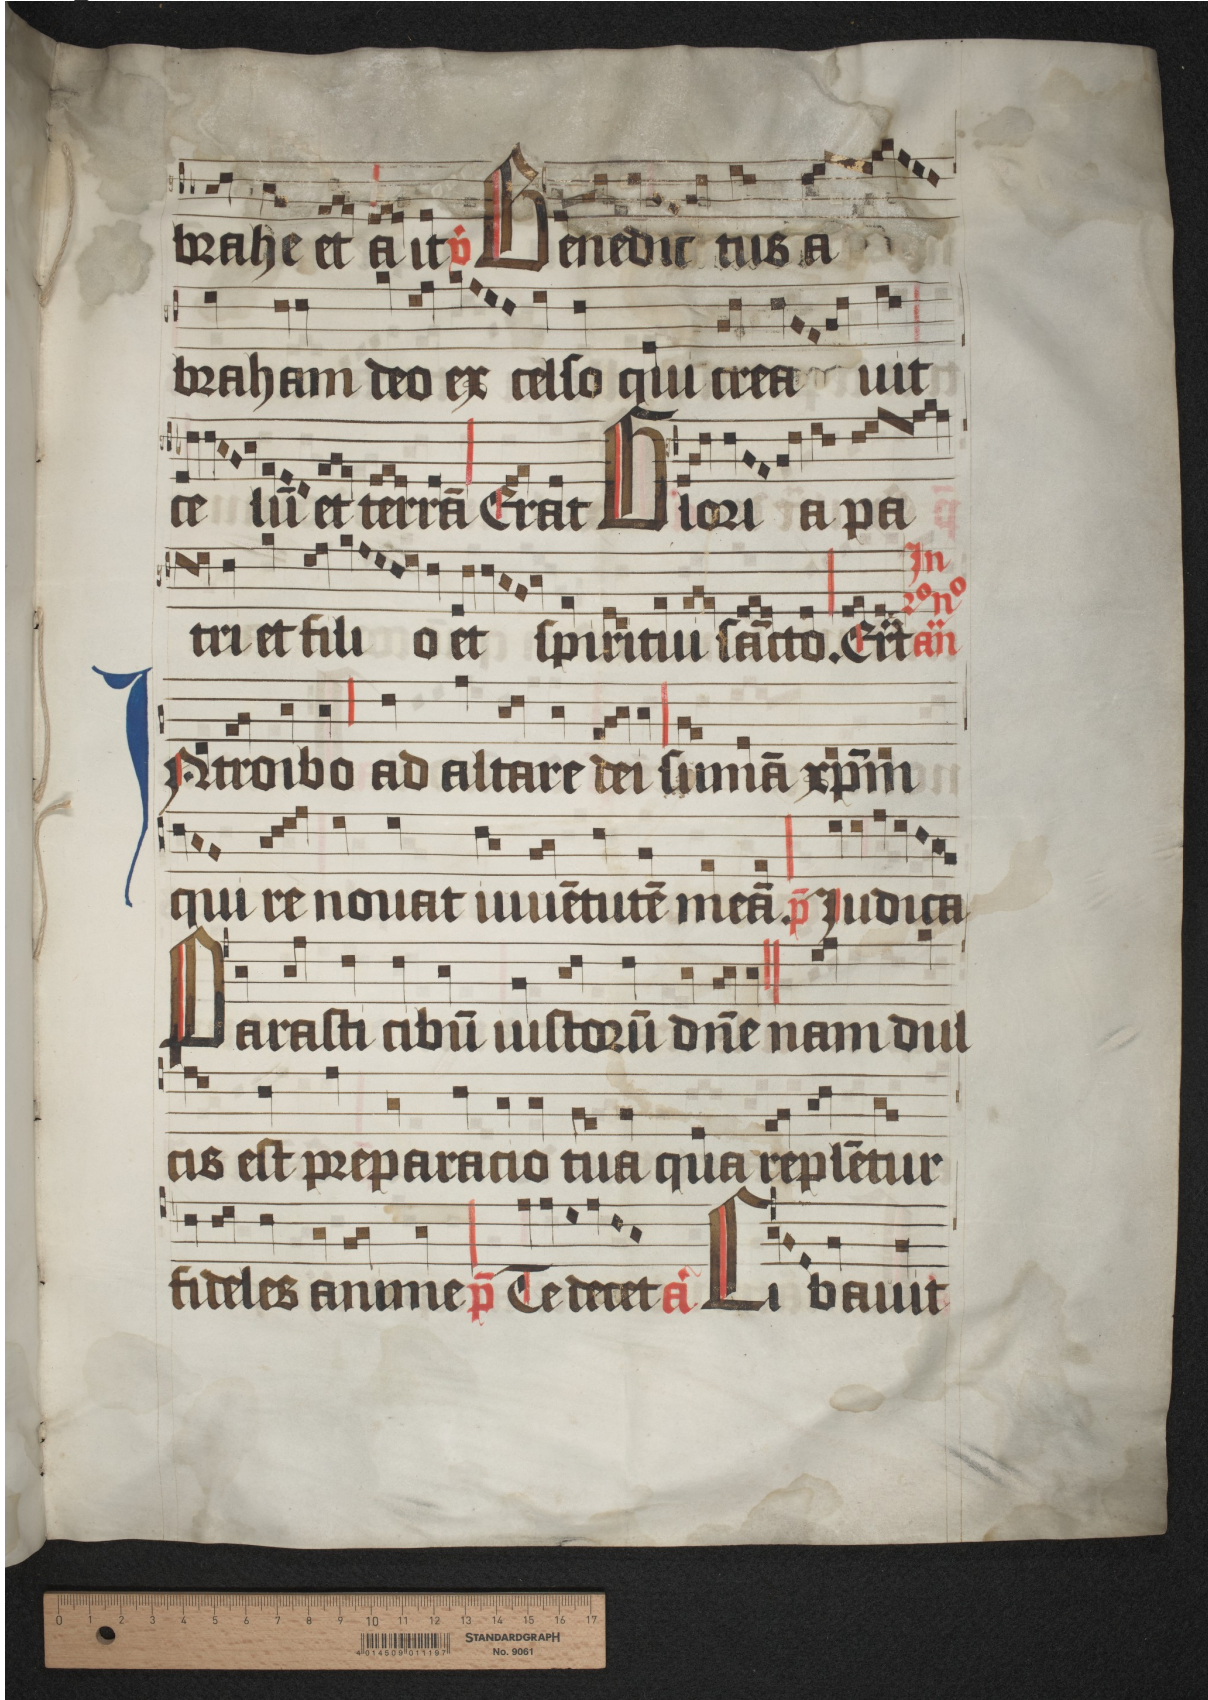 brahe et a it v̉ Benedic tus a
braham deo ex celso qui crea uit
ce lu̅ et terra̅ Erat Glori a pa
tri et fili o et spiritui sa̅cto. Er̅t
In
2º nº
an̅
INtroibo ad altare dei suma̅ xp̅m
qui re nouat iuue̅tute̅ mea̅. p̅ Iudica
Parasti cibu̅ iustoru̅ dn̅e nam dul
cis est preparacio tua qua reple̅tur
fideles anime p̅ Te decet a̅ Li bauit
0 1 2 3 4 5 6 7 8 9 10 11 12 13 14 15 16 17
4 014509 011197
STANDARDGRAPH
No. 9061